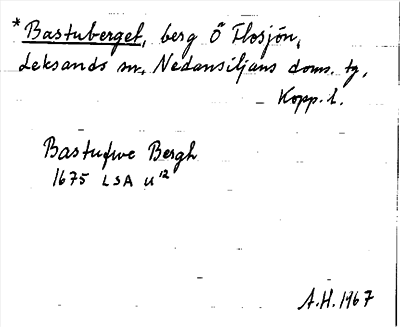 * Bastuberget, berg Ö Flosjön,
Leksands sn, Nedansiljans doms. tg,
Kopp. l.
Bastufwe Bergh
1675 LSA U 12
A.H. 1967